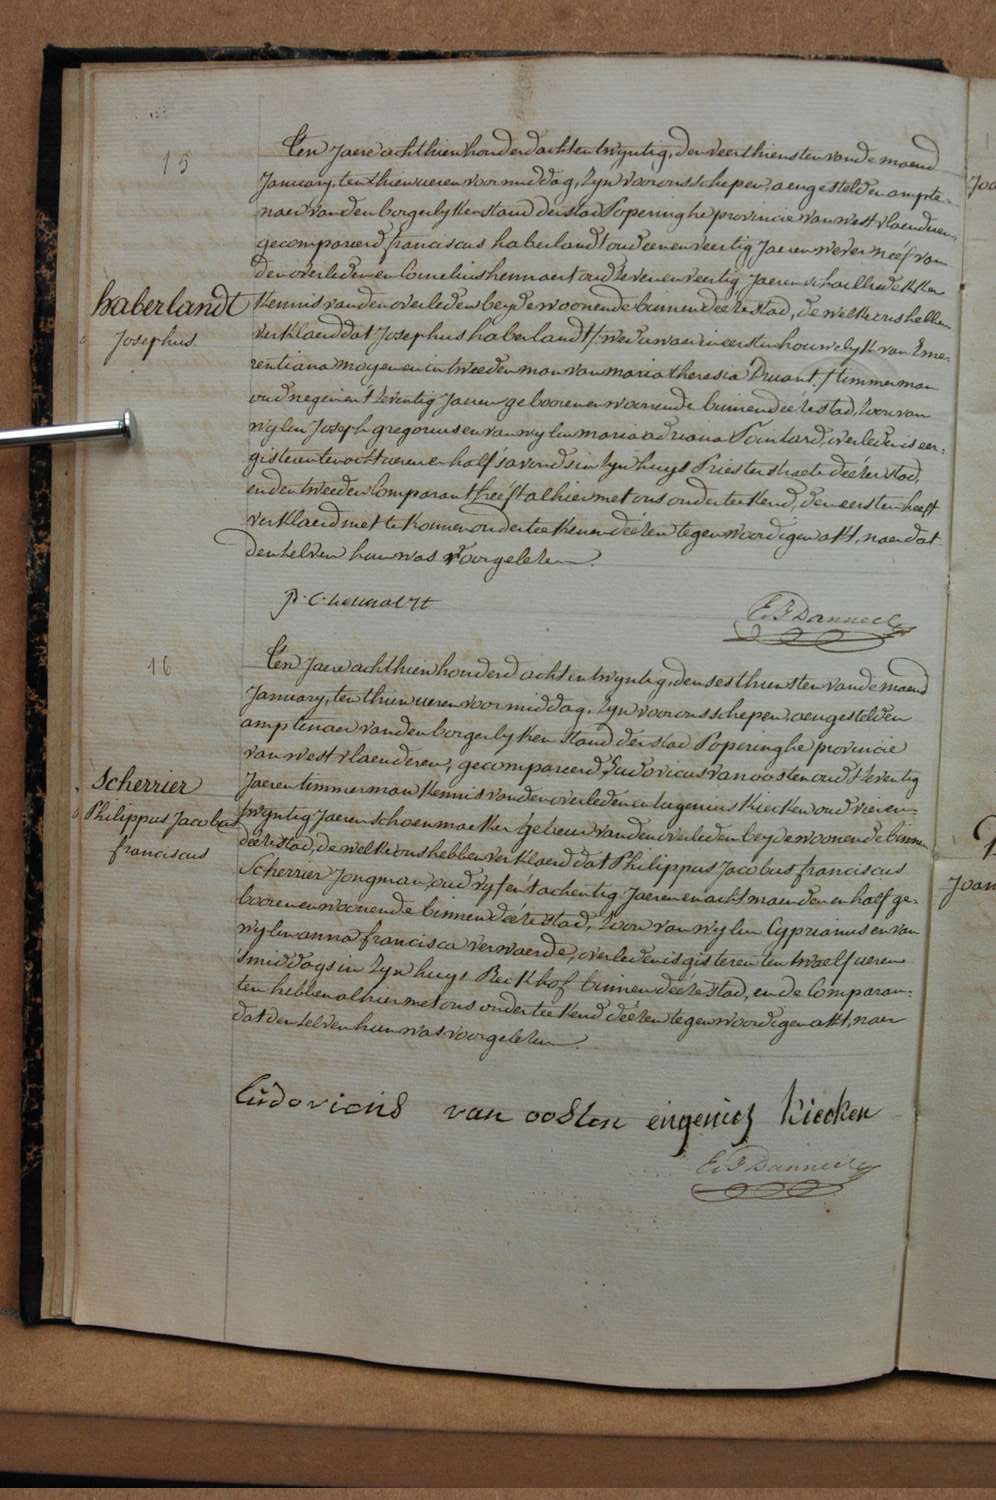 15
Ten Jaere achthien honderd acht en twyntig, den veerthiensten vande maend
January, ten thien ueren voormiddag, zyn voor ons schepen, aengestelden ampte-
naer van den borgerlyken stand der stad Poperinghe provincie van westvlaenderen,
gecompareerd franciscus haberlandt oud een en veertig Jaeren wever neéf van
den overledenen Cornelius hennaert oud zeven en veertig Jaeren
haberlandt
Josephus
kennis van den overleden beyde woonende binnen deéze stad, de welke ons hebben
verklaerd dat Josephus haberlandt /: weduwaer in eersten houwelyk van Eme-
rentiana moyen en in tweeden man van maria theresia Druant :/ timmerman
oud negen en t'zeventig Jaeren geboren en woonende binnen deéze stad, zoon van
wylen Joseph gregorius en van wylen maria adriana Tointard, overleden is eer-
gisteren ten acht ueren en half s'avonds in zyn huys Priesterstraete deézer stad,
en den tweeden Comparant heéft alhier met ons onderteekend, den eersten heeft
verklaerd niet te konnen onderteekenen deézen tegenwoordigen akt, naer dat
den zelven hun was voorgelezen.
P. C. hennaert
E. J. Danneel
16
Ten Jaere achthien honderd acht en twyntig, den sesthiensten vande maend
January, ten thien ueren voormiddag, zyn voor ons schepen, aengestelden
amptenaer van den borgerlyken stand der stad Poperinghe provincie
van westvlaenderen, gecompareerd, Ludovicus van oosten oud t'zeventig
Scherrier
Philippus Jacobus
franciscus
Jaeren timmerman kennis van den overleden en Eugenius Kiecken oud vier en
twyntig Jaeren schoenmaeker gebuer van den overleden beyde woonende binnen
deéze stad, de welke ons hebben verklaerd dat Philippus Jacobus franciscus
Scherrier Jongman, oud vyf en t'achentig Jaeren en acht maenden en half ge-
booren en woonende binnen deéze stad, zoon van wylen Cyprianus en van
wylen anna francisca verwaerde, overleden is gisteren ten twaelf ueren
s'middags in zyn huys Reckhof binnen deéze stad, en de Comparan-
ten hebben alhier met ons onderteekend deézen tegenwoordigen akt, naer
dat den zelven hun was voorgelezen.
Ludovicus van oosten eugenius kiecken
E. J. Danneel
Joan